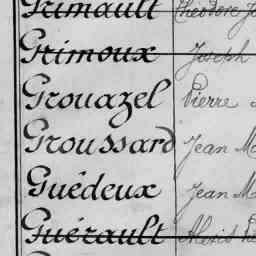 Grimault Théodore
Grimoux Joseph
Grouazel Pierre
Groussard Jean M
Guédeux Jean M
Guérault Alexis